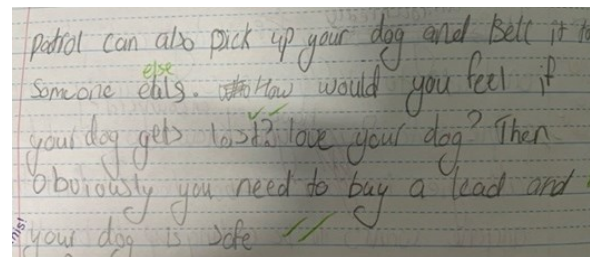 patrol can also pick up your dog and sell it to
else
someone etuls. How would you feel if
your dog gets lost? love your dog? Then
obviously you need to buy a lead and
your dog is safe